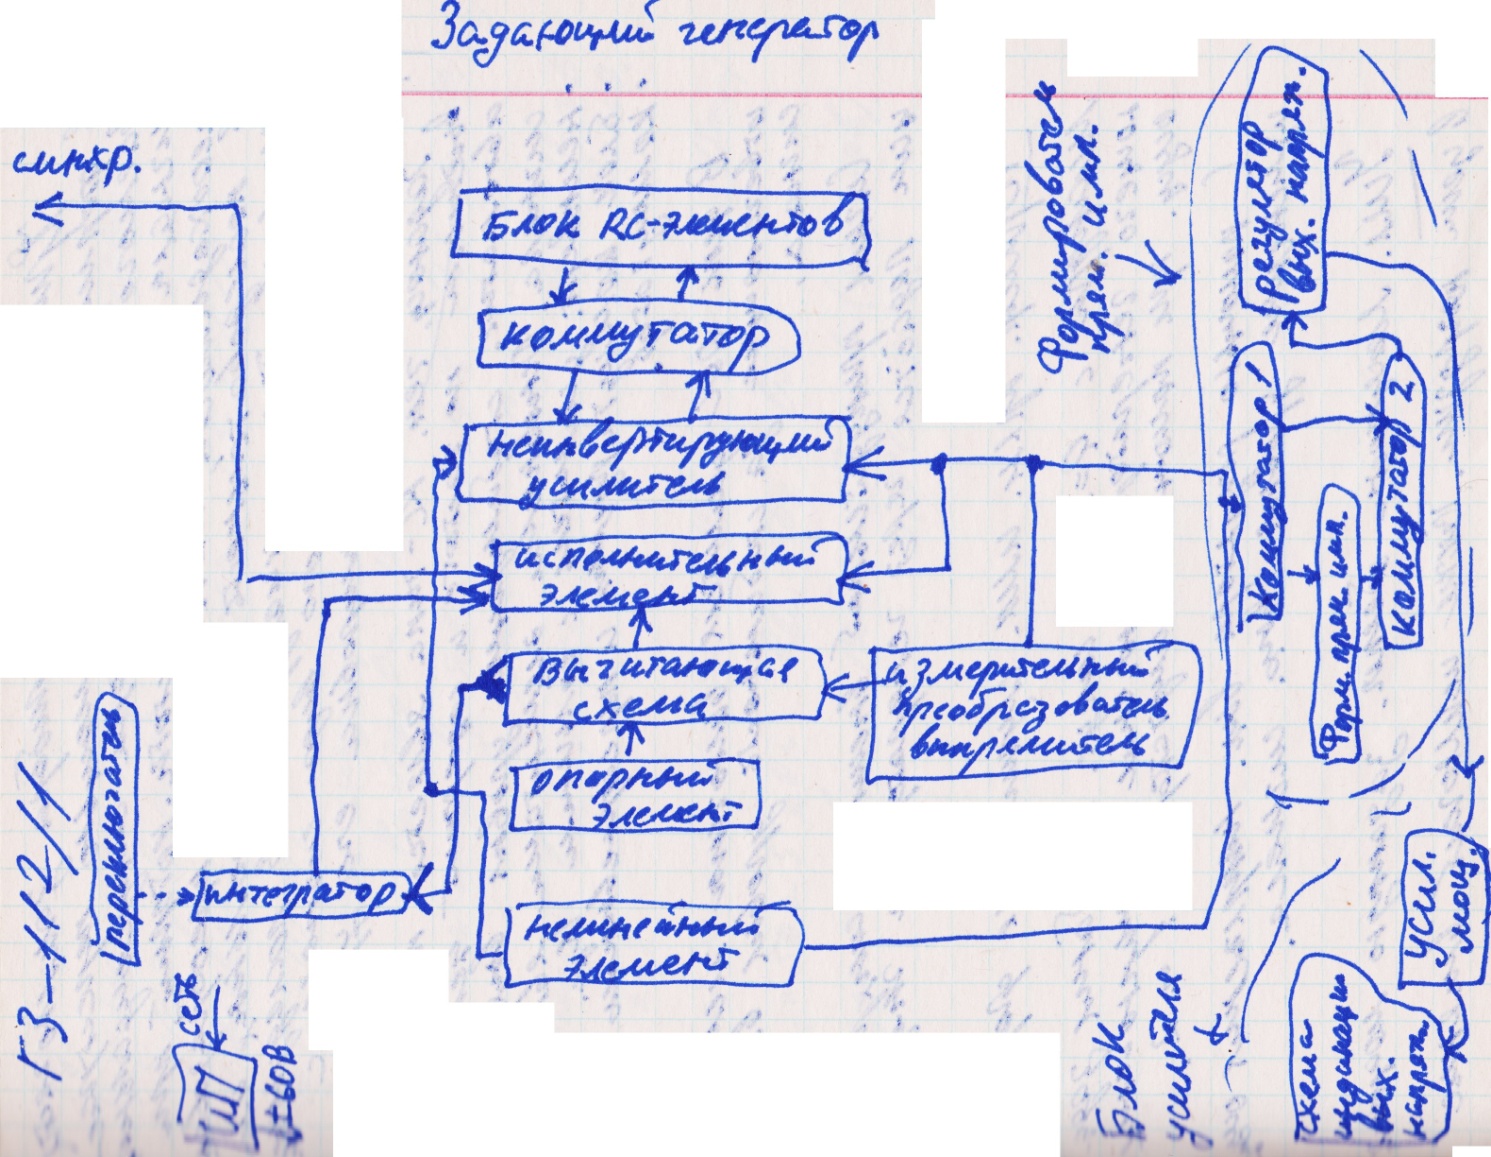 Задающий генератор
синхр.
Блок RC-элементов
коммутатор
неинвертирующий
усилитель
исполнительный
элемент
вычитающая
схема
измерительный
преобразователь
выпрямитель
опорный
элемент
интегратор
нелинейный
элемент
переключатель
Г3-112/1
сеть
ИП
±60В
Формирователь
прям. имп.
регулятор
вых. напряж.
коммутатор 1
Форм. прям. имп.
коммутатор 2
усил.
мощ.
Блок
усилителя
схема
индикации
вых.
напряж.